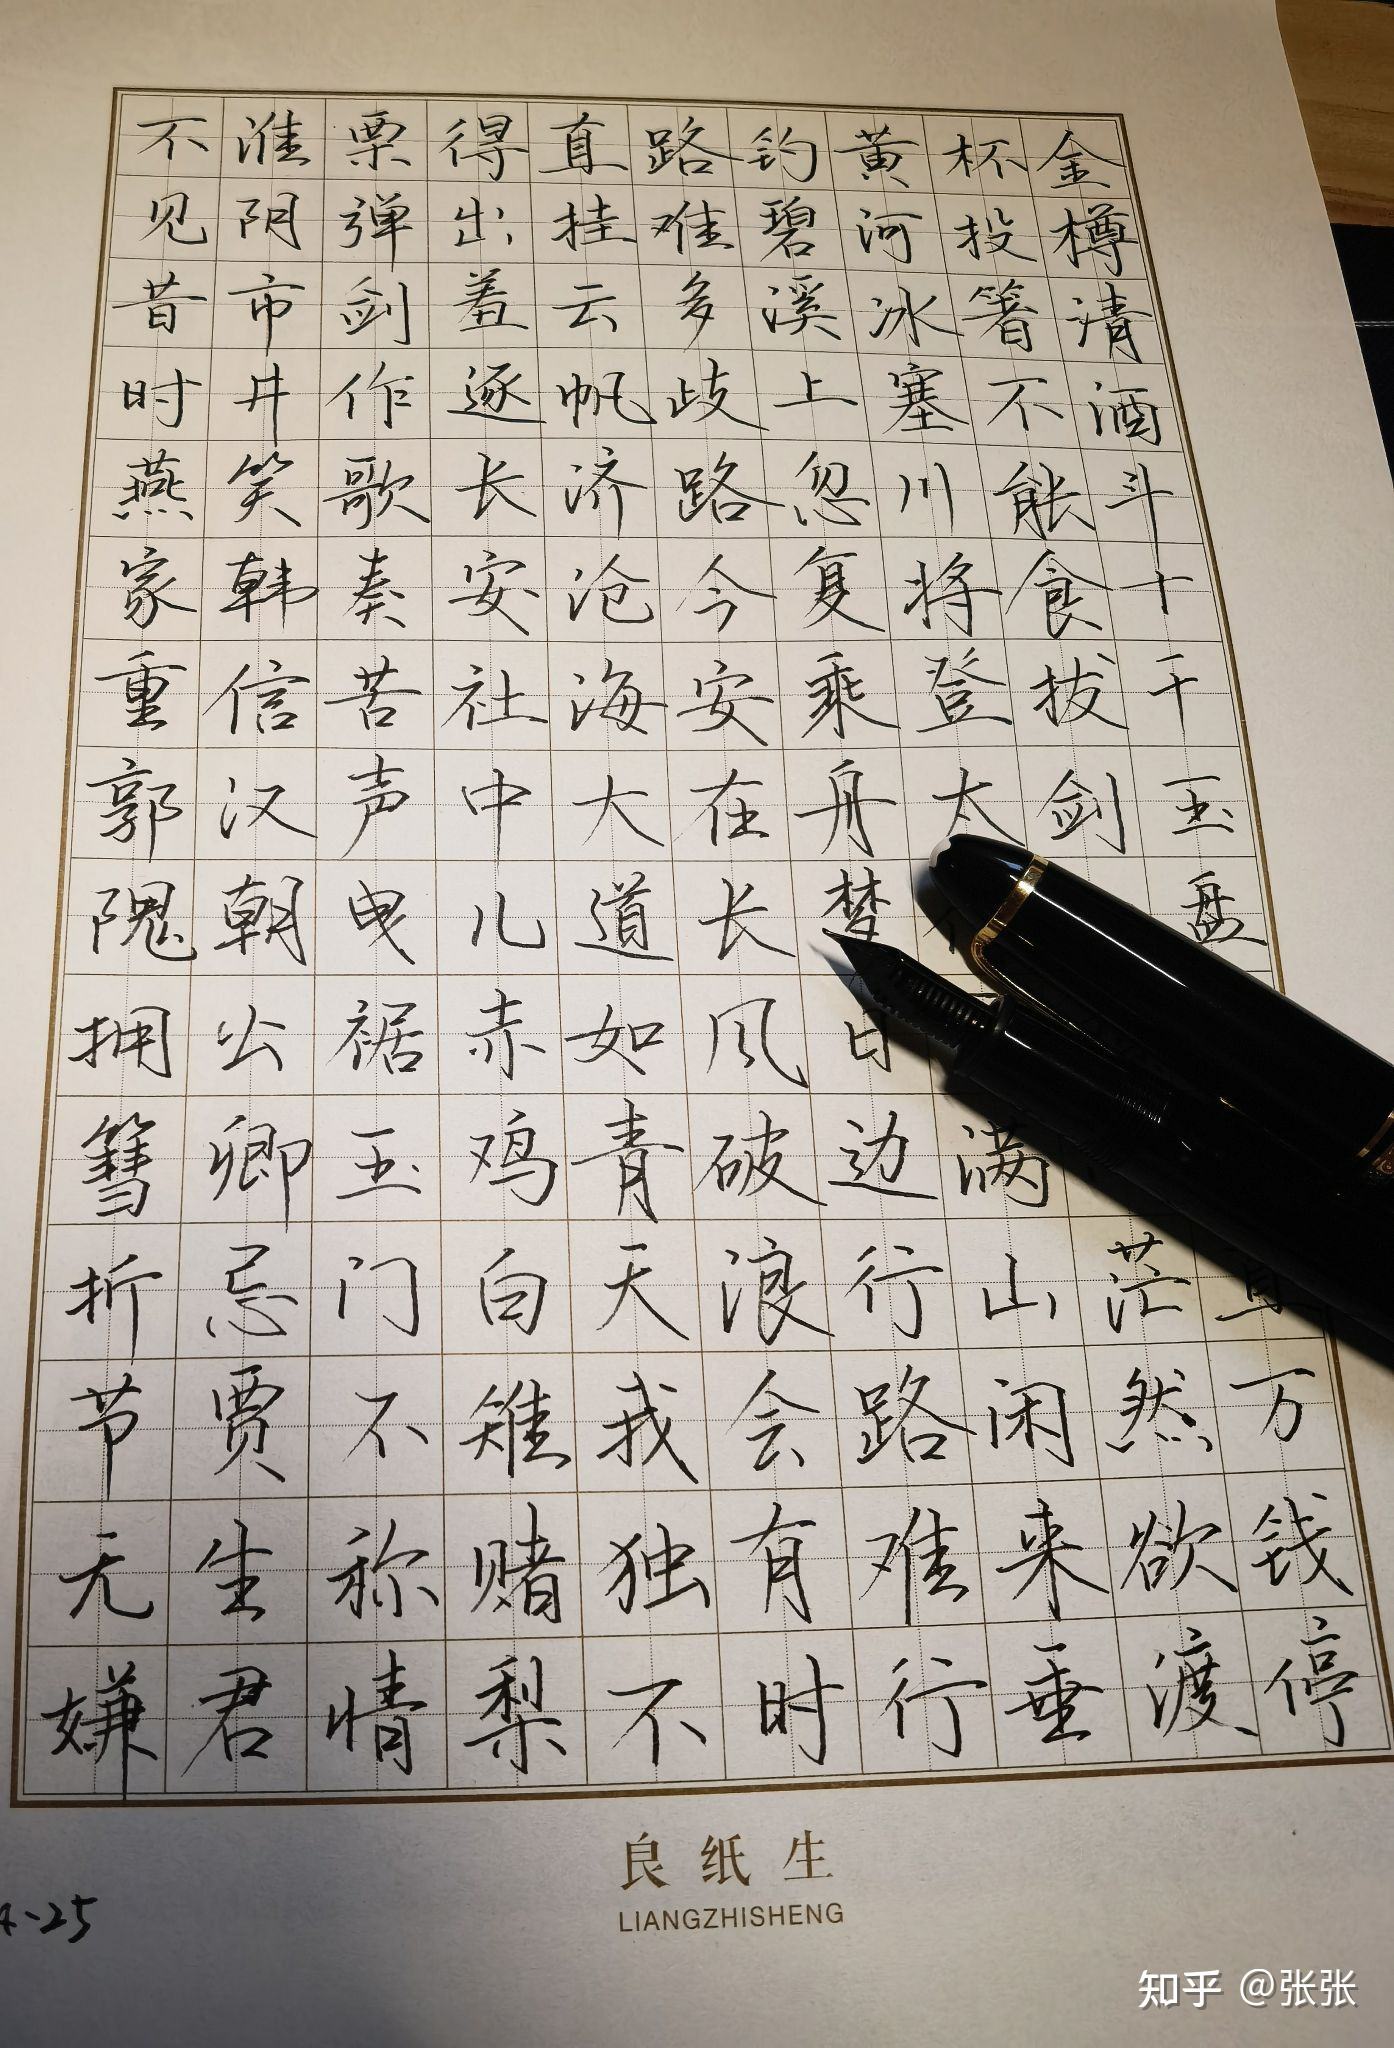 金樽清酒斗十千玉盘直万钱停
杯投箸不能食拔剑茫然欲渡
黄河冰塞川将登太满山闲来垂
钓碧溪上忽复乘舟梦日边行路难行
路难多歧路今安在长风破浪会有时
直挂云帆济沧海大道如青天我独不
得出羞逐长安社中儿赤鸡白雉赌梨
栗弹剑作歌奏苦声曳裾玉门不称情
淮阴市井笑韩信汉朝公卿忌贾生君
不见昔时燕家重郭隗拥篲折节无嫌
良纸生
LIANGZHISHENG
4-25
知乎 @张张